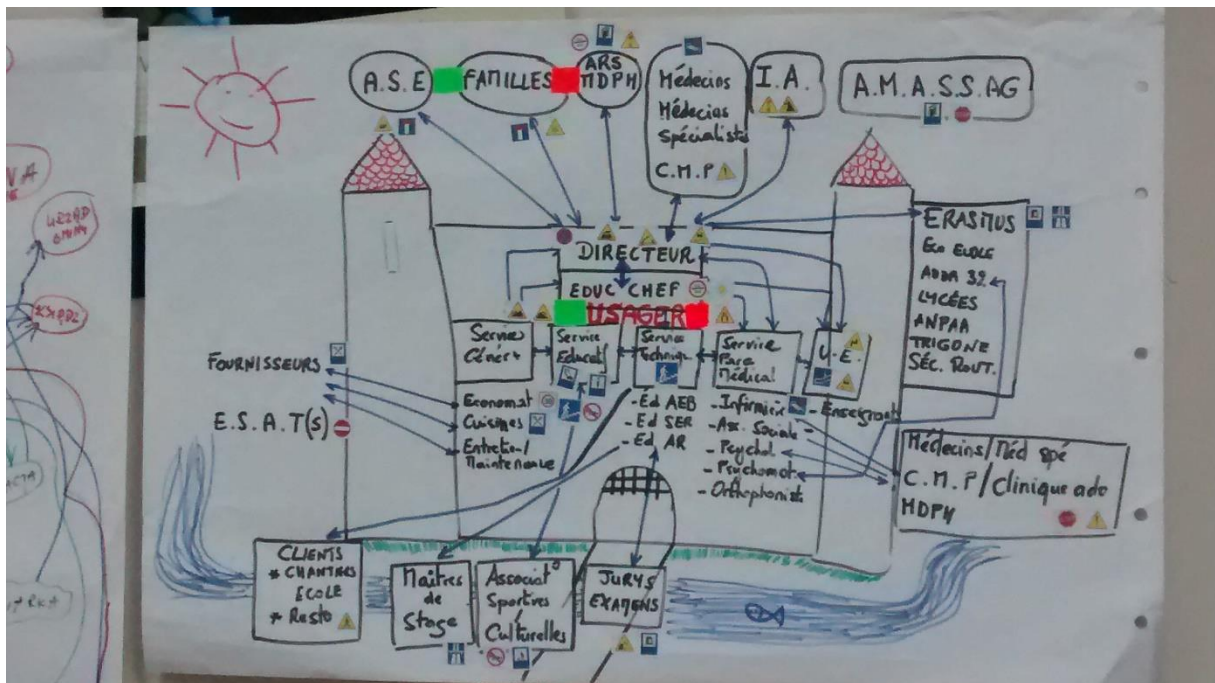 A.S.E
FAMILLES
ARS
MDPH
Médecins
Médecins
Spécialiste
C.M.P
I.A.
A.M.A.S.S.AG
DIRECTEUR
EDUC CHEF
USAGER
ERASMUS
ECO ECOLE
ADDA 32
LYCÉES
ANPAA
TRIGONE
SÉC. ROUT.
Service
Educatif
Service
Techniq
Service
Para
Médical
U.E.
FOURNISSEURS
E.S.A.T(s)
Economat
Cuisines
Entretien/
Maintenance
- Éd AEB
- Ed SER
- Ed AR
- Infirmière
- Ass. Sociale
- Psychol
- Psychomot.
- Orthophoniste
- Enseignants
Médecins/Méd spé
C.M.P/Clinique ado
MDPH
CLIENTS
* CHANTIERS
ECOLE
* Resto
Maîtres
de
Stage
Associat°
Sportives
/
Culturelles
JURYS
EXAMENS